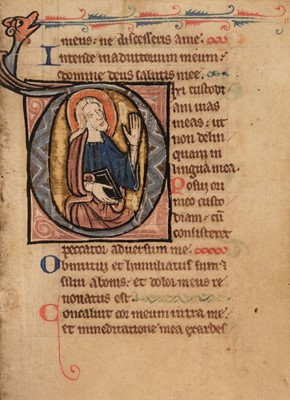 meus: ne discesseris a me.
Intende in adiutorium meum:
domine deus salutis mee.
Dixi custodi
am uias
meas: ut
non delin
quam in
lingua mea.
Posui ori
meo custo
diam: cū
consisteret
peccator aduersum me.
Obmutui et humiliatus sum &
silui a bonis: et dolor meus re
nouatus est.
Concaluit cor meum intra me
et in meditatione mea exardes